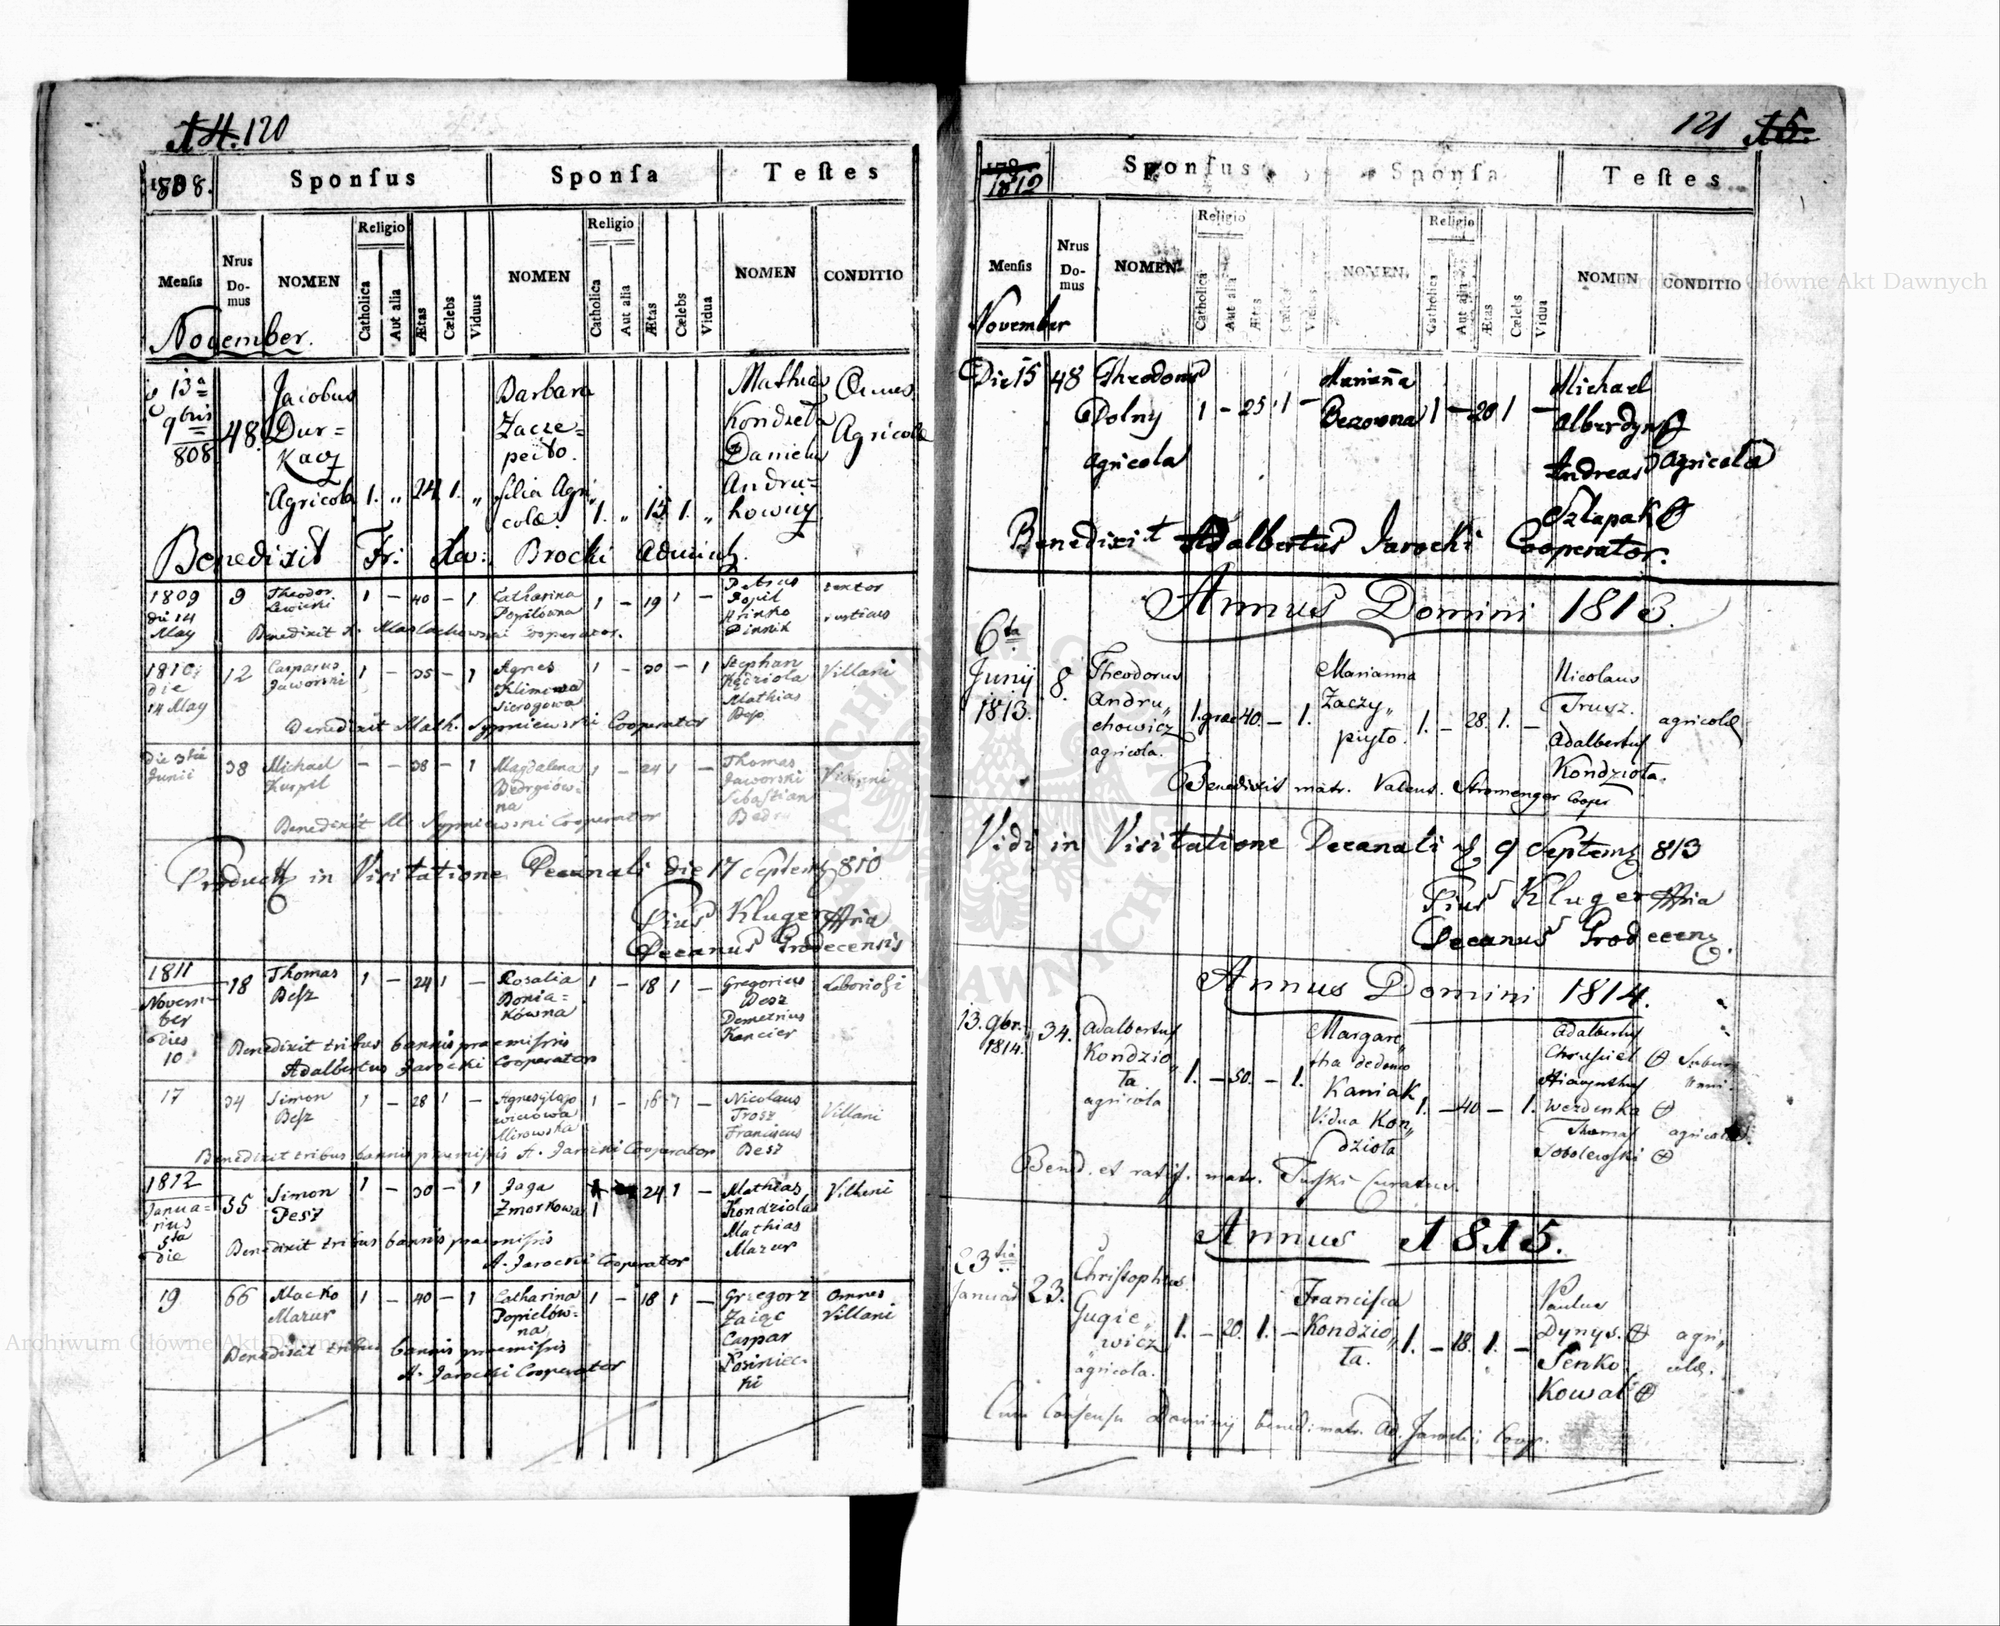 120
1808.
Sponſus
Sponſa
Teſtes
Menſis
Nrus Do-mus
NOMEN
Religio
Catholica
Aut alia
Ætas
Cælebs
Viduus
NOMEN
Religio
Catholica
Aut alia
Ætas
Cælebs
Vidua
NOMEN
CONDITIO
November.
13a
9bris
808
48.
Jacobus
Dur=
kacz
Agricola 1. „ 24 1. „
Barbara
Zacze=
peito.
filia Agri
colæ 1. „ 15 1. „
Mathias
Kondzeła
Daniel
Andru=
howicz
Omnes
Agricolæ
Benedixit Fr: Xav: Brocki Administr.
1809
die 14
May
9
Theodor
Lewicki
1 – 40 – 1
Catharina
Popilowna
1 – 19 1 –
Petrus
Popil
Hrinko
Pinnik
textor
rusticus
Benedixit A. Maslachowski Cooperator.
1810
die
14 May
12
Casparus
Jaworski
1 – 35 – 1
Agnes
Klimowa
Sierogowa
1 – 30 – 1
Stephan
Kędziola
Mathias
Bojo
Villani
Benedixit Math. Sypniewski Cooperator
die 3tia
Junii
38
Michael
Kuspil
– – 38 – 1
Magdalena
Bedrgiów=
na
1 – 24 1 –
Thomas
Jaworski
Sebastian
Villani
Benedixit M. Sypniewski Cooperator
Product in Visitatione Decanali die 17 Septemb 810
Pius Kluger
Decanus Grodecensis
1811
Novem-
ber
dies
10
18
Thomas
Besz
1 – 24 1 –
Rosalia
Bonia=
kówna
1 – 18 1 –
Gregorius
Desz
Demetrius
Kancier
Laboriosi
Benedixit tribus bannis praemissis
Adalbertus Jarocki Cooperator
17
34
Simon
Besz
1 – 28 1 –
Mirowska
1 – 16 1 –
Nicolaus
Trosz
Franciscus
Besz
Villani
Benedixit tribus bannis praemissis A. Jarocki Cooperator
1812
Janua=
rius
5ta
die
55
Simon
Pesz
1 – 30 – 1
Jaga
Zmorkowa
1 24 1 –
Mathias
Kondziola
Mathias
Mazur
Villani
Benedixit tribus bannis praemissis
A. Jarocki Cooperator
19
66
Macko
Mazur
1 – 40 – 1
Catharina
Popielów=
na
1 – 18 1 –
Grzegorz
Zaiąc
Caspar
Łosiniec
ki
Omnes
Villani
Benedixit tribus bannis praemissis
A. Jarocki Cooperator
121
1812
Sponſus
Sponſa
Teſtes
Menſis
Nrus Do-mus
NOMEN
Religio
Catholica
Aut alia
Ætas
Cælebs
Viduus
NOMEN
Religio
Catholica
Aut alia
Ætas
Cælebs
Vidua
NOMEN
CONDITIO
November
Die 15
48
Theodorus
Dolny
agricola
1 – 25 1 –
Marianna
Bezowna
1 – 20 1 –
Michael
Alberdyn
Andreas
Szlapak
Agricola
Benedixit Adalbertus Jarocki Cooperator.
Annus Domini 1813.
6ta
Junij
1813.
8.
Theodorus
Andru„
chowicz
agricola.
1. graec 40. – 1.
Marianna
Zaczy„
piyto.
1. – 28. 1. –
Nicolaus
Trusz.
Adalbertus
Kondzioła.
agricolæ
Benedixit matr. Valent. Stromenger Cooper
Vidi in Visitatione Decanali d. 9 Septemb 813
Pius Kluger
Decanus Grodecens.
Annus Domini 1814.
13. 9br.
1814.
34.
Adalbertus
Kondzio„
ła
agricola
1. – 50. – 1.
Margare„
tha de domo
Kaniak
Vidua Kon„
dzioła
1. – 40 – 1.
Adalbertus
Chrusciel
Hiacynthus
Werdenka
Thomas
Sobolewski
agricolæ
Bened. et ratif. matr. Turski Curatus.
Annus 1815.
23tia
Januar
23.
Christophorus
Gugie„
wicz
agricola.
1. – 20. 1. –
Francisca
Kondzio„
ła.
1. – 18. 1. –
Paulus
Dynys.
Senko
Kowal
agri„
colæ.
Cum Consensu Dominij bened: matr. Ad. Jarocki Coop.
Archiwum Główne Akt Dawnych
Archiwum Główne Akt Dawnych